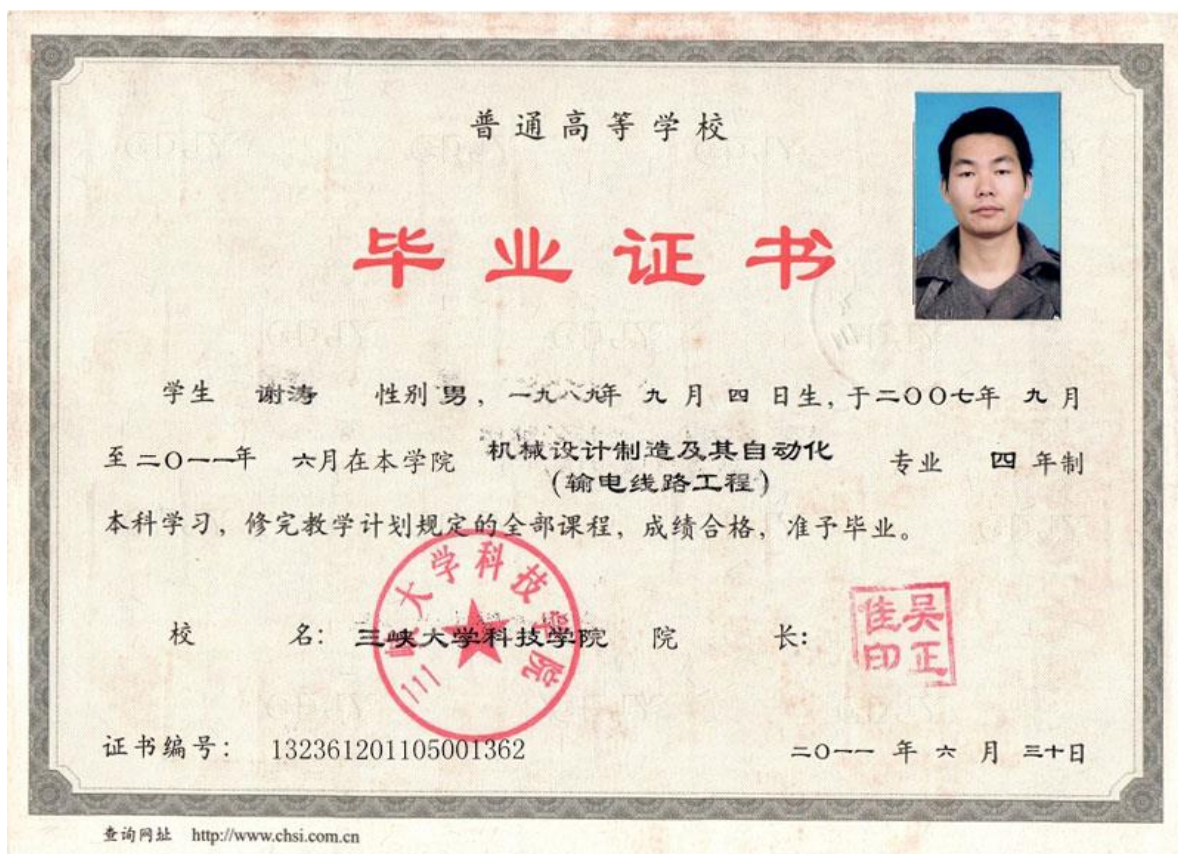 普通高等学校
毕业证书
学生 谢涛 性别 男，一九八九年 九 月 四 日生，于二〇〇七年 九 月
至二〇一一年 六月在本学院 机械设计制造及其自动化（输电线路工程） 专业 四 年制
本科学习，修完教学计划规定的全部课程，成绩合格，准予毕业。
三峡大学科技学院
吴正佳印
校 名：三峡大学科技学院 院 长：
证书编号：132361201105001362 二〇一一 年 六 月 三十日
查询网址 http://www.chsi.com.cn